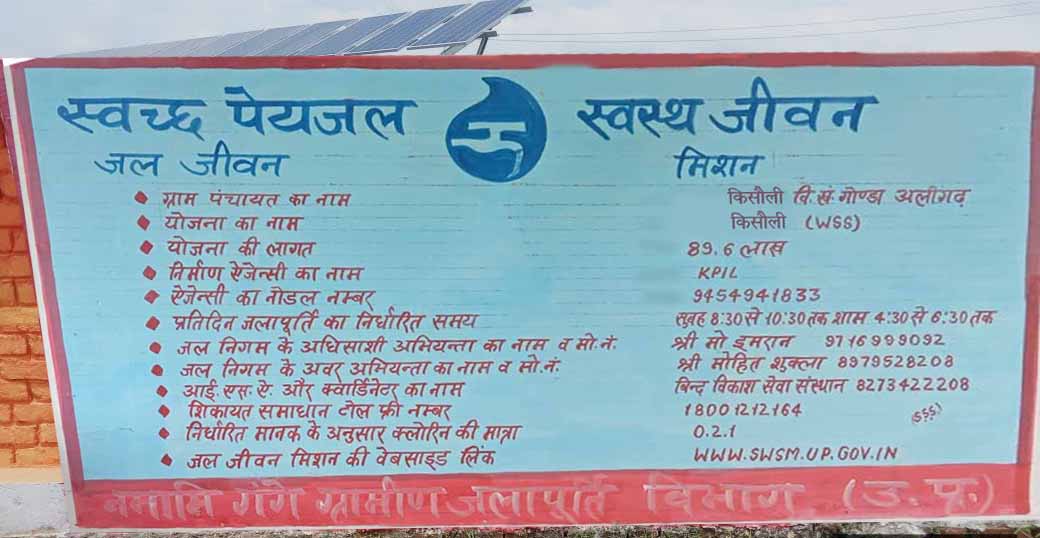 स्वच्छ पेयजल स्वस्थ जीवन
जल जीवन मिशन
ग्राम पंचायत का नाम किसौली वि.सं. गोण्डा अलीगढ़
योजना का नाम किसौली (WSS)
योजना की लागत 89.6 लाख
निर्माण ऐजेन्सी का नाम KPIL
ऐजेन्सी का नोडल नम्बर 9454941833
प्रतिदिन जलापूर्ति का निर्धारित समय सुबह 8:30 से 10:30 तक शाम 4:30 से 6:30 तक
जल निगम के अधिसाशी अभियन्ता का नाम व मो.नं: श्री मो इमरान 9716999092
जल निगम के अवर अभियन्ता का नाम व मो.नं: श्री मोहित शुक्ला 8979528208
आई.एस.ऐ. और क्वार्डिनेटर का नाम बिन्द विकाश सेवा संस्थान 8273422208
शिकायत समाधान टोल फ्री नम्बर 18001212164
निर्धारित मानक के अनुसार क्लोरिन की मात्रा 0.2.1
जल जीवन मिशन की वेबसाइड लिंक WWW.SWSM.UP.GOV.IN
नमामि गंगे ग्रामीण जलापूर्ति विभाग (उ.प्र.)